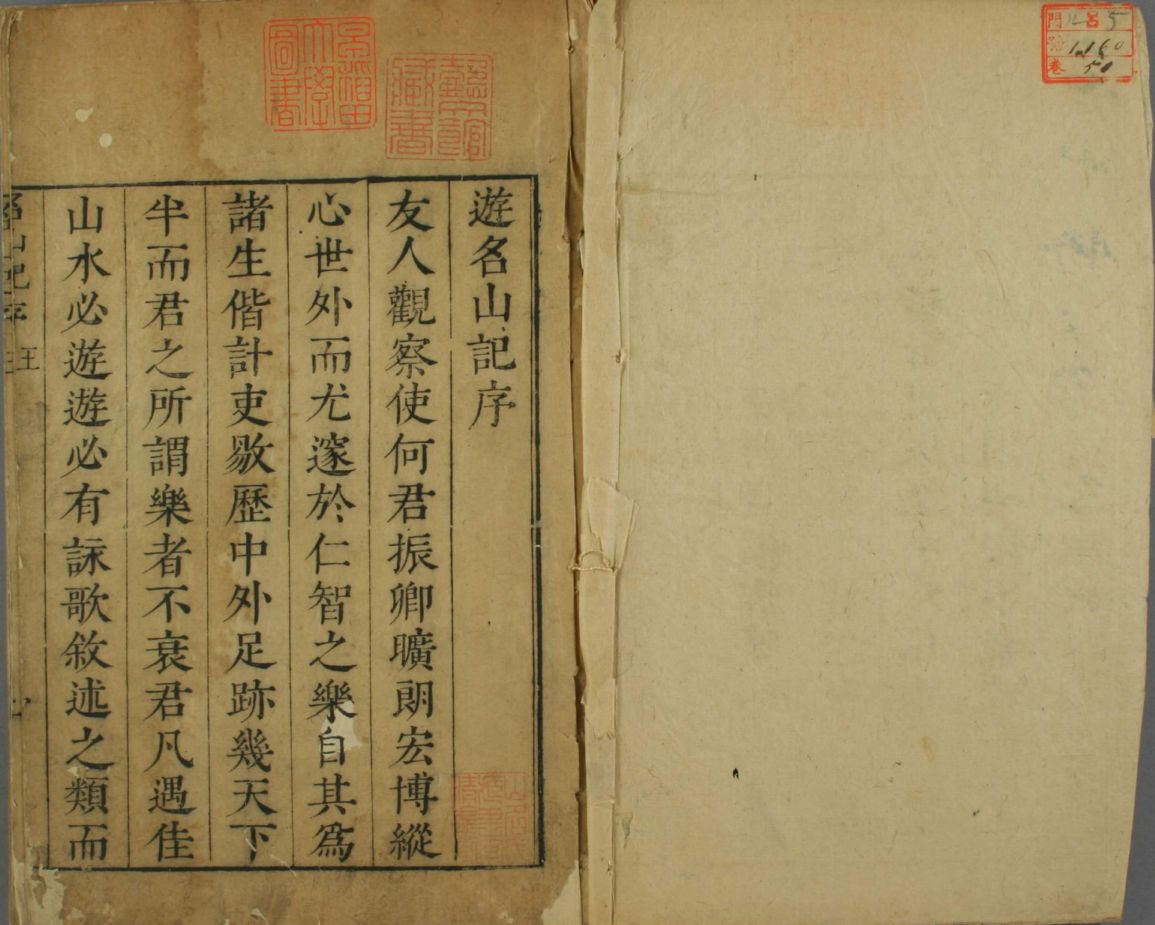 門 ル 呂 5
號 1160
卷 50
早稻田大學圖書
遊名山記序
友人觀察使何君振卿曠朗宏博縱
心世外而尤邃於仁智之樂自其爲
諸生偕計吏敭歷中外足跡幾天下
半而君之所謂樂者不衰君凡遇佳
山水必遊遊必有詠歌敘述之類而
名山記序 王